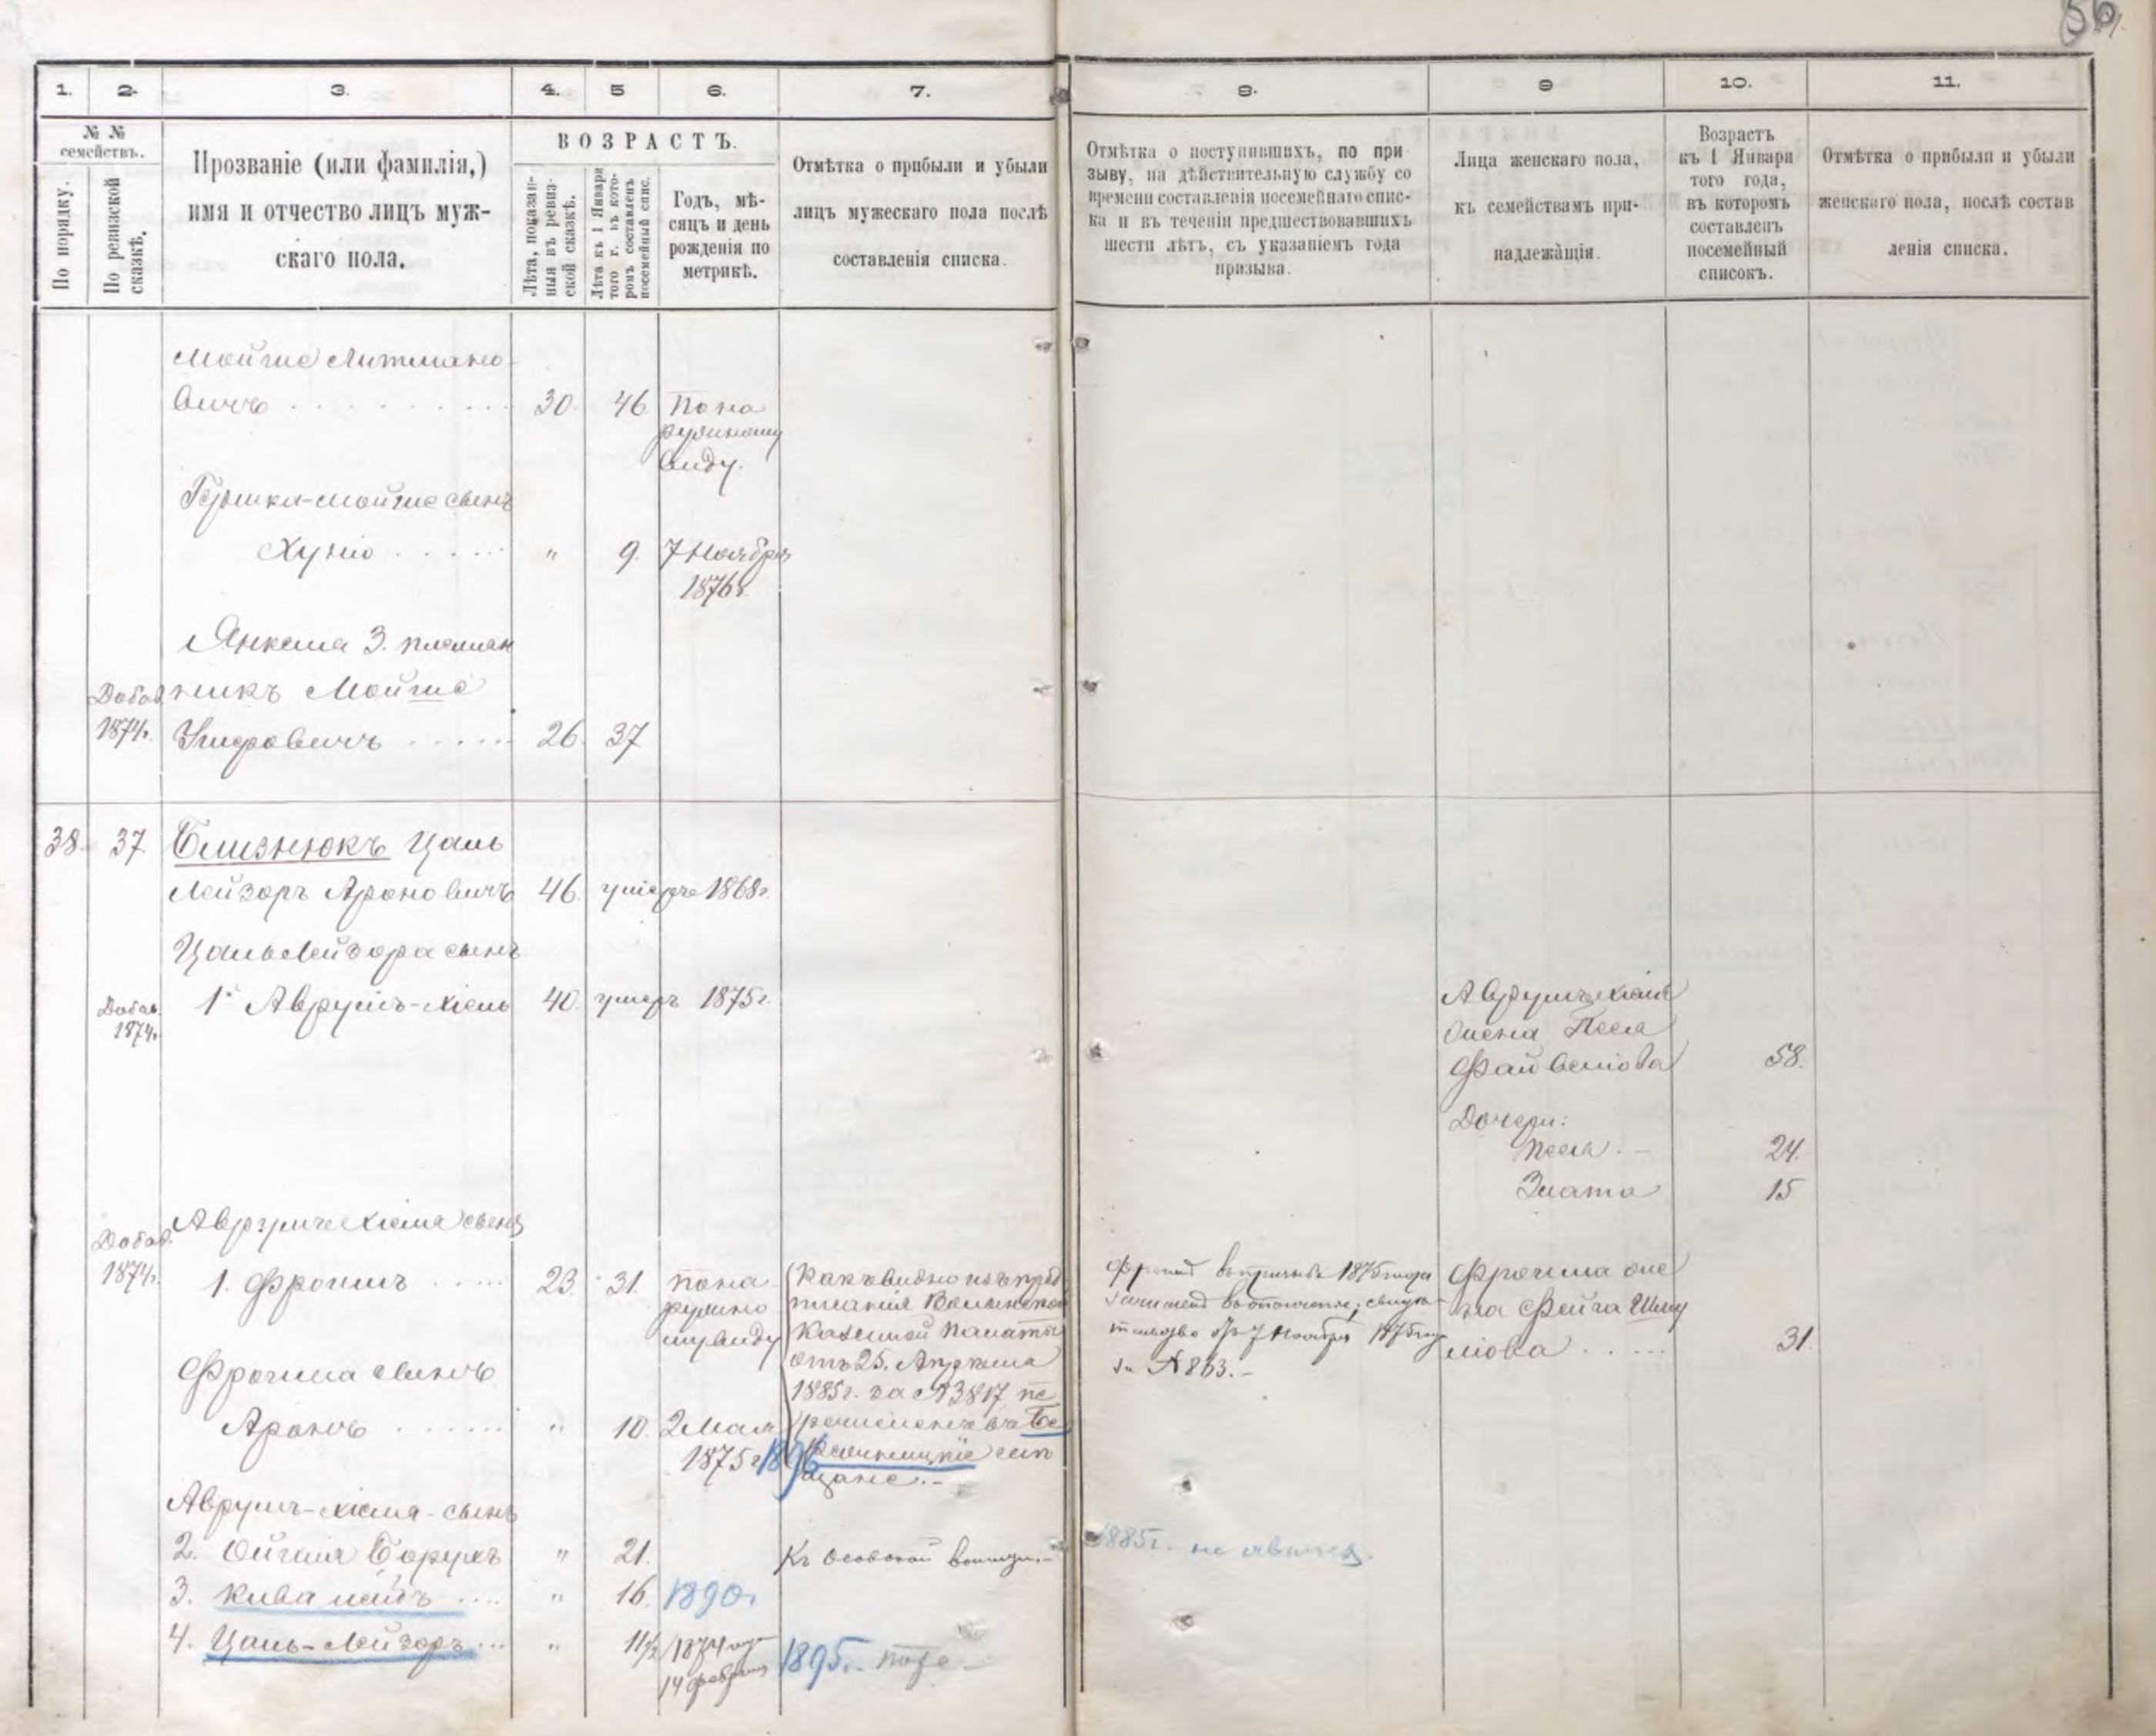 56
1.
2.
3.
4.
5
6.
7.
8.
9
10.
11.
№ №
семействъ.
По порядку.
По ревизской
сказкѣ.
Прозваніе (или фамилія,)
имя и отчество лицъ муж-
скаго пола.
ВОЗРАСТЪ.
Лѣта, показан-
ныя въ ревиз-
ской сказкѣ.
Лѣта къ 1 Января
того г. въ кото-
ромъ составленъ
посемейный спис.
Годъ, мѣ-
сяцъ и день
рожденія по
метрикѣ.
Отмѣтка о прибыли и убыли
лицъ мужескаго пола послѣ
составленія списка.
Отмѣтка о поступившихъ, по при
зыву, на дѣйствительную службу со
времени составленія посемейнаго спис-
ка и въ теченіи предшествовавшихъ
шести лѣтъ, съ указаніемъ года
призыва.
Лица женскаго пола,
къ семействамъ при-
надлежащія.
Возрастъ
къ 1 Января
того года,
въ которомъ
составленъ
посемейный
списокъ.
Отмѣтка о прибыли и убыли
женскаго пола, послѣ состав
ленія списка.
Мойше Литмано-
вичъ . . . . . . . . . 30. 46. По на
ружному
виду.
Гершка-Мойше сынъ
Хуню . . . . . . " 9. 7 Ноября
1876г.
Янкеля 3. племян
Добав. никъ Мойше
1874г. . . . . . 26. 37
38. 37. Близнюкъ Цаль
Лейзоръ Ароновичъ 46. умеръ 1868г.
Цаль Лейзора сынъ
Добав. 1й Аврумъ-Хіель 40. умеръ 1875г.
1874г.
Аврумъ Хіеля
жена Песя
Файвелова 58.
Дочери:
Песя . – 24.
Злата 15
Аврумъ Хіеля сынъ
Добав.
1874г. 1. Фроимъ . . . . . 23. 31. по на
ружно
му виду
Какъ видно изъ пред
писанія Волынской
Казенной Палаты
отъ 25. Апрѣля
1885г. за №3817, пе
речисленъ въ Бе
мѣ
щане. –
Фроимъ въ призывѣ 1875 года
зачисленъ въ ополченіе; свидѣ-
тельство отъ 7 Ноября 1875 года
за № 863. –
Фроима же
на Фейга Шму
лова . . . . . 31.
Фроима сынъ
Аронъ . . . . . . . " 10. 2 Мая
1875г. 1896
Аврумъ-Хіеля-сынъ
2. Борухъ " 21.
1885г. не явился.
3. Кива Лейбъ . . . . " 16. 1890г.
4. Цаль-Лейзоръ . . . " 11½ 1874 года
14 Февраля
1895г.